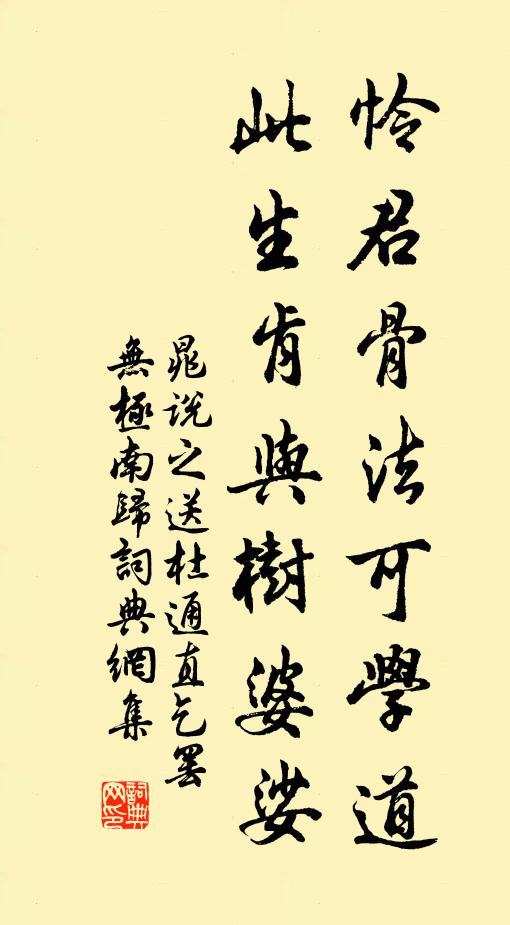 怜君骨法可學道
此生肯與樹婆娑
晁說之送杜通直乞罷
無極南歸詞典網集
詞典
网印